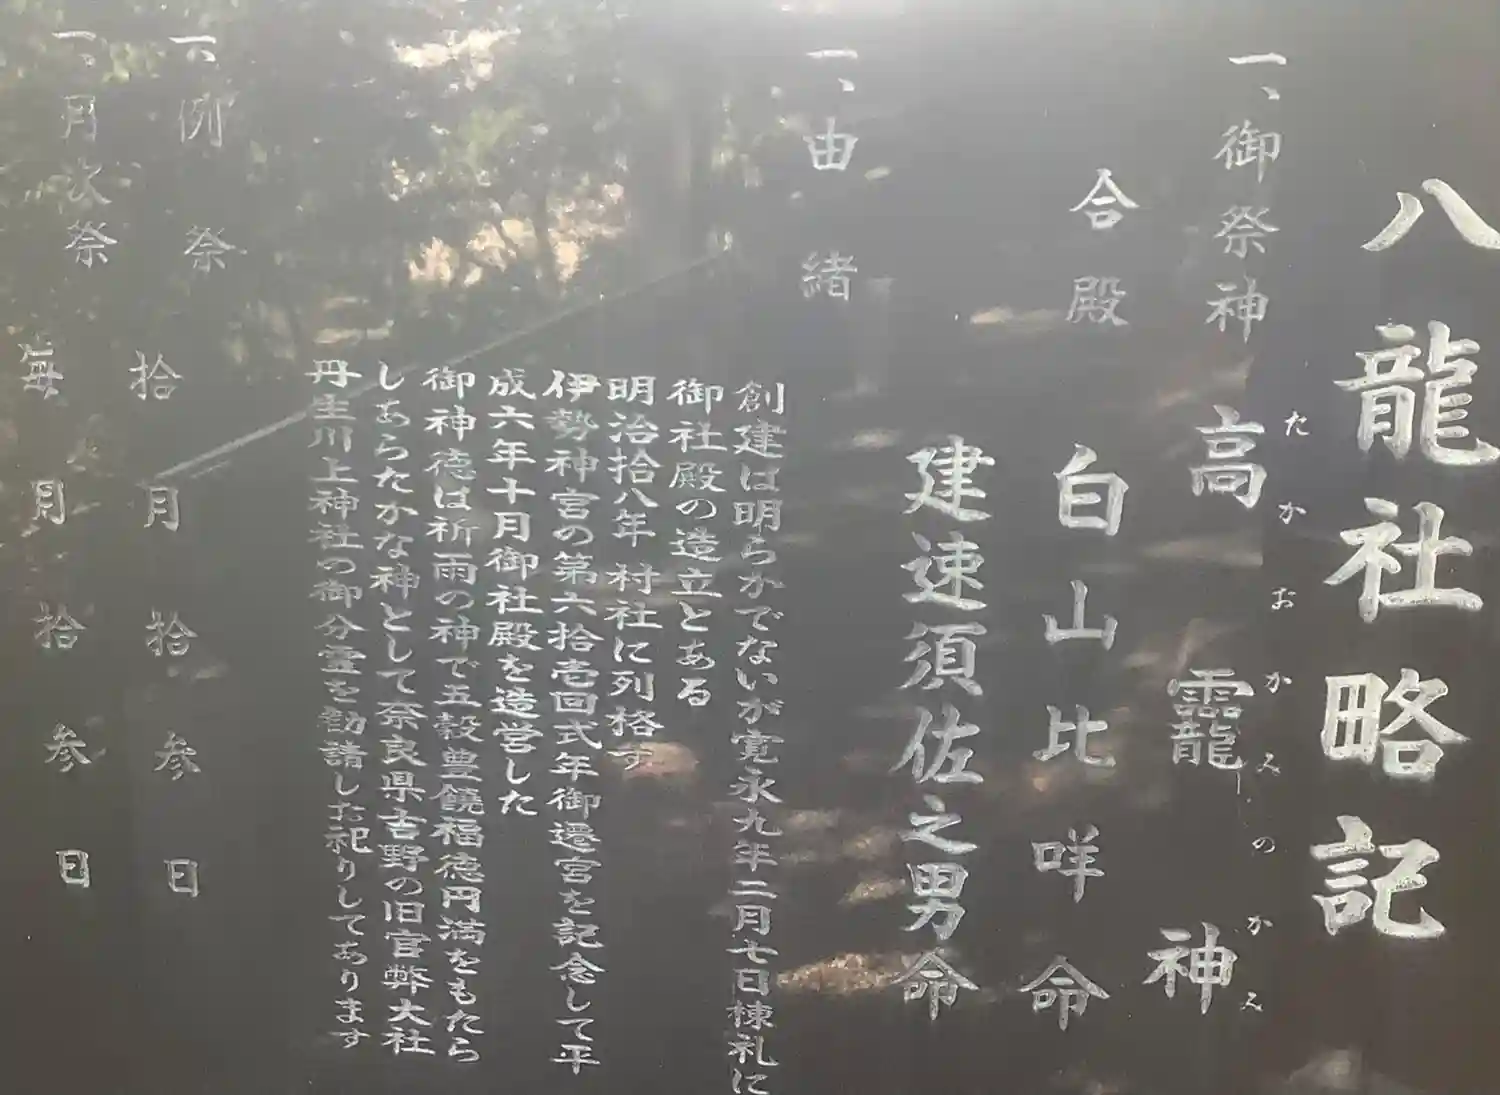 八龍社略記
一、御祭神　高龗神
たかおかみのかみ
合殿　白山比咩命
建速須佐之男命
一、由緒
創建は明らかでないが寛永九年二月七日棟礼に
御社殿の造立とある
明治拾八年 村社に列格す
伊勢神宮の第六拾壱回式年御遷宮を記念して平
成六年十月御社殿を造営した
御神徳は祈雨の神で五穀豊饒福徳円満をもたら
しあらたかな神として奈良県吉野の旧官弊大社
丹生川上神社の御分霊を勧請しお祀りしてあります
一、例祭　拾月拾参日
一、月次祭　毎月拾参日